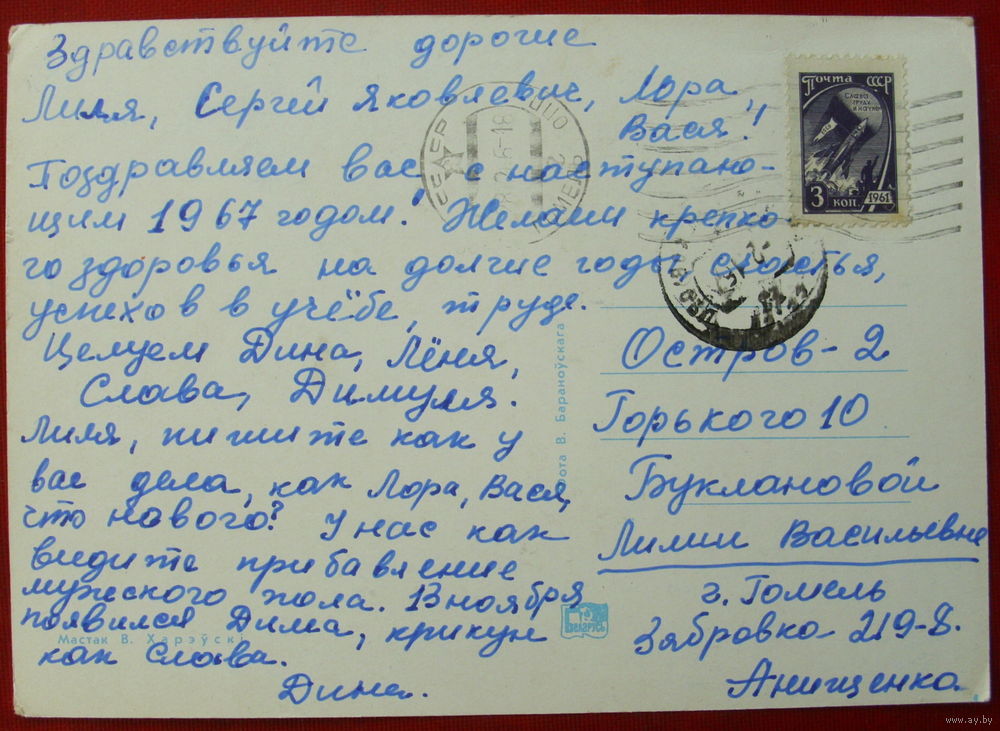 Здравствуйте дорогие
Лиля, Сергей Яковлевич, Лора,
Вася!
Поздравляем вас с наступаю-
щим 1967 годом! Желаем крепко-
го здоровья на долгие годы, счастья,
успехов в учёбе, труде.
Целуем Дина, Лёня,
Слава, Димуля.
Лиля, пишите как у
вас дела, как Лора, Вася,
что нового? У нас как
видите прибавление
мужского пола. 13 ноября
появился Дима, крикун
как Слава.
Дина.
Мастак В. Харэўскі
Фота В. Бараноўскага
Беларусь
Почта СССР
Слава
труду
и науке
3 коп. 1961
Остров-2
Горького 10
Буклановой
Лилии Васильевне
г. Гомель
Зябровка 219-8.
Анищенко
www.ay.by